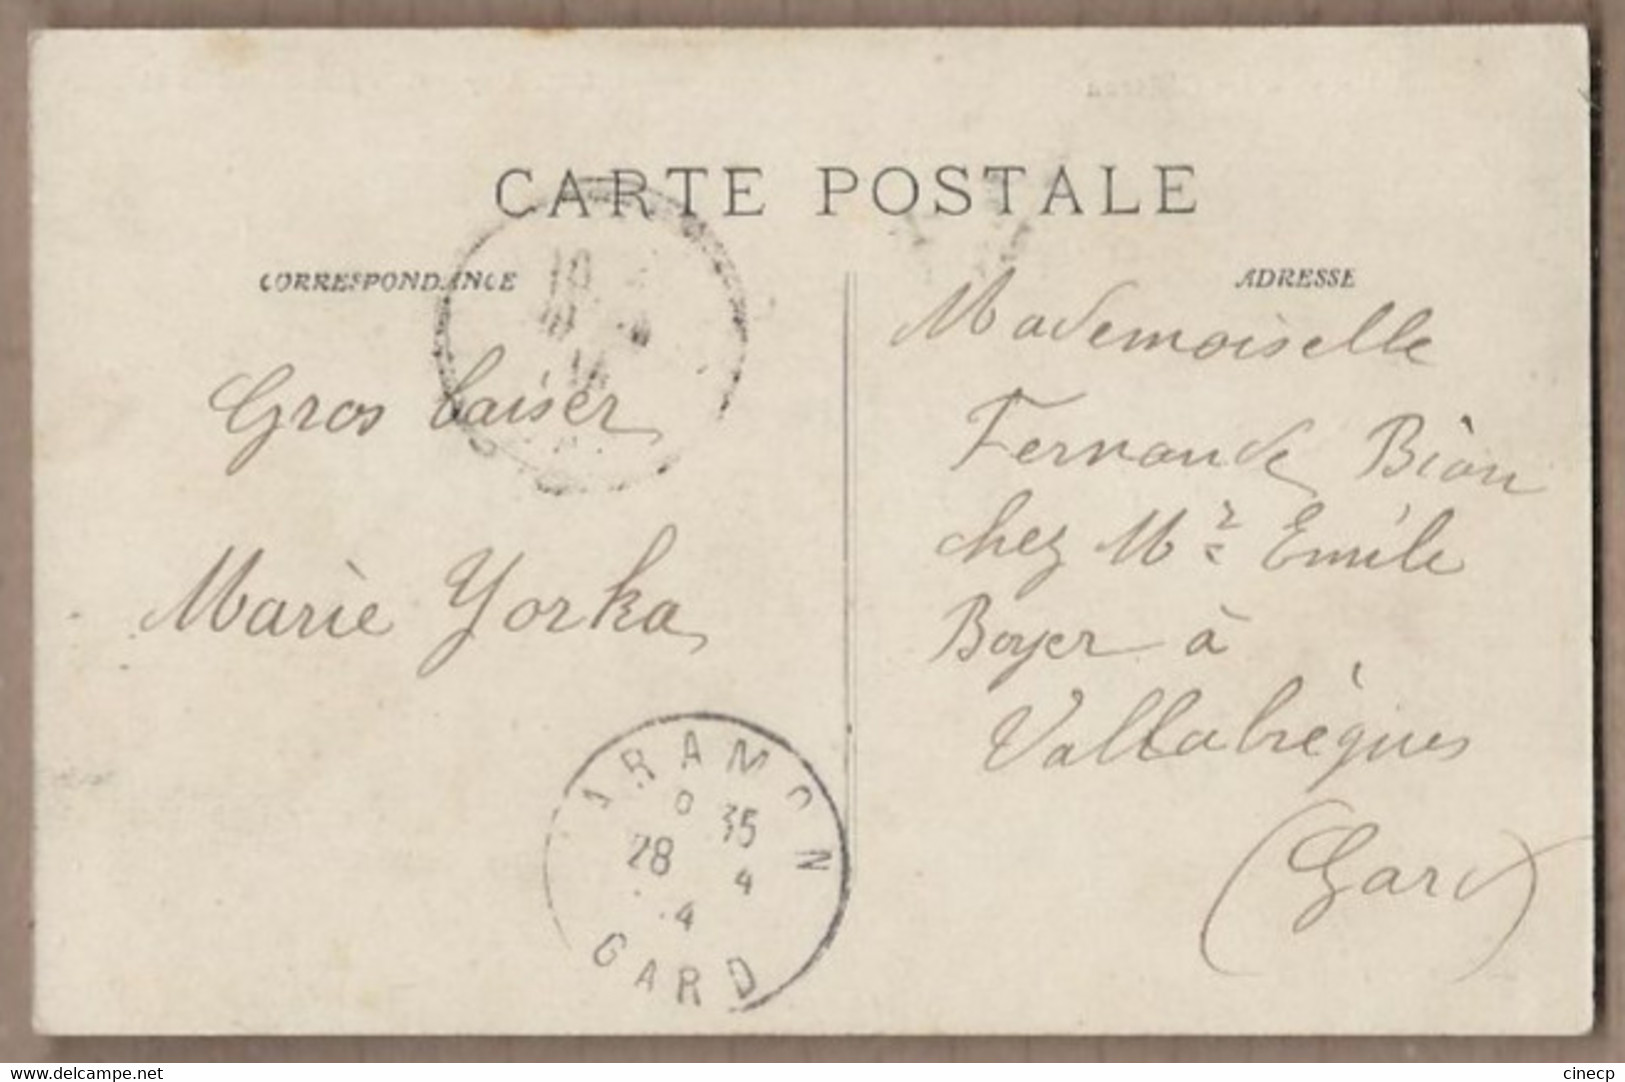 CARTE POSTALE
CORRESPONDANCE
ADRESSE
Gros baiser
Marie Yorka
Mademoiselle
Fernande Bion
chez Mr Emile
Boyer à
Vallabrègues
(Gard)
ARAMON
28 4
4
GARD
www.delcampe.net
cinecp